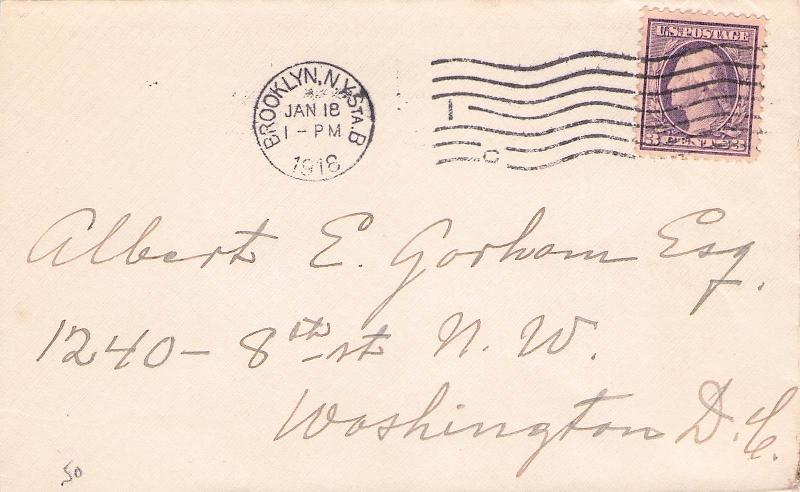 U.S. POSTAGE
3 CENTS 3
BROOKLYN, N.Y. STA. B
JAN 18
1 - PM
1918
1
C
Albert E. Gorham Esq.
1240 - 8th st N. W.
Washington D.C.
50